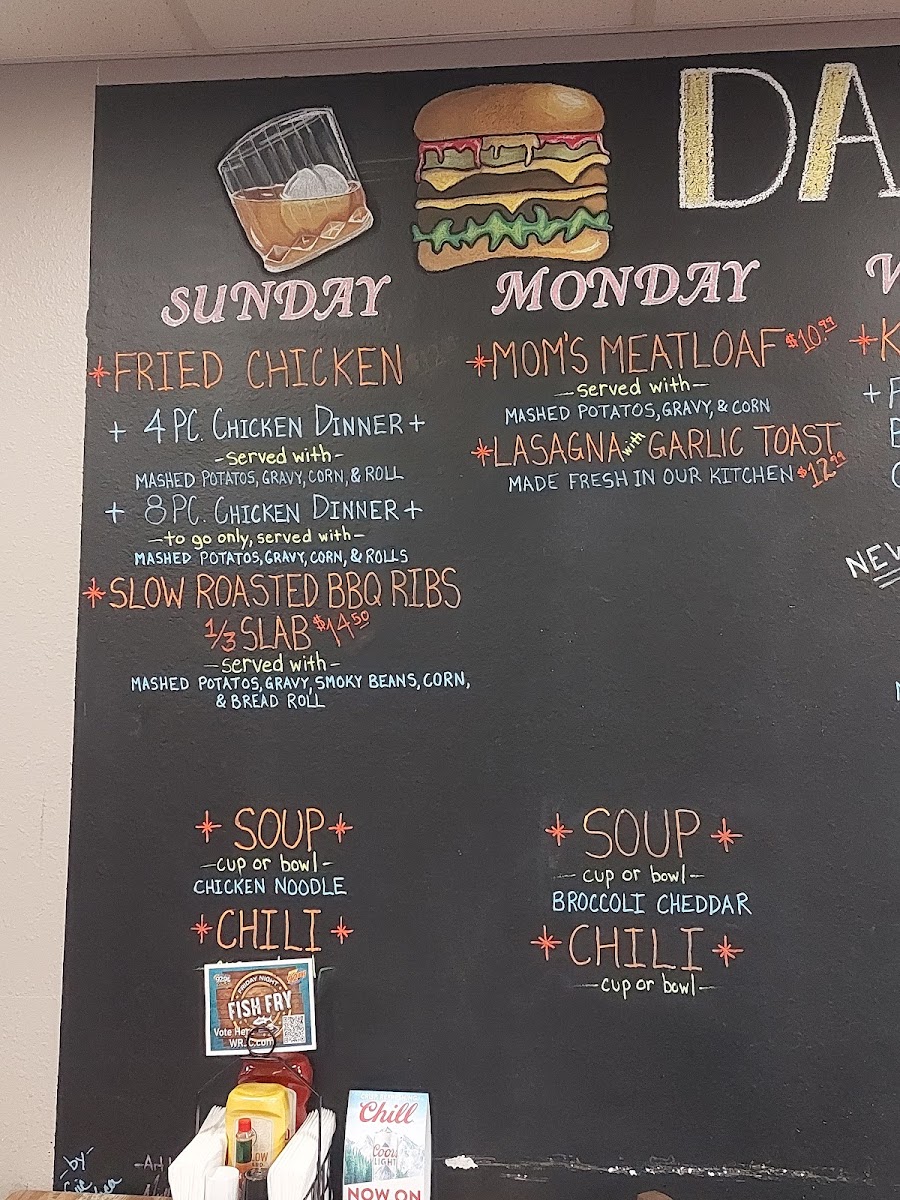 DA
SUNDAY
*FRIED CHICKEN
+ 4 PC. CHICKEN DINNER +
-served with-
MASHED POTATOS, GRAVY, CORN, & ROLL
+ 8 PC. CHICKEN DINNER +
-to go only, served with-
MASHED POTATOS, GRAVY, CORN, & ROLLS
*SLOW ROASTED BBQ RIBS
1/3 SLAB $14.50
-served with-
MASHED POTATOS, GRAVY, SMOKY BEANS, CORN,
& BREAD ROLL
*SOUP*
-cup or bowl-
CHICKEN NOODLE
*CHILI*
MONDAY
*MOM'S MEATLOAF $10.99
-served with-
MASHED POTATOS, GRAVY, & CORN
*LASAGNA with GARLIC TOAST
MADE FRESH IN OUR KITCHEN $12.99
*SOUP*
-cup or bowl-
BROCCOLI CHEDDAR
*CHILI*
-cup or bowl-
NEW
FRIDAY NIGHT
FISH FRY
Vote
Chill
Coors
LIGHT
NOW ON
-by-